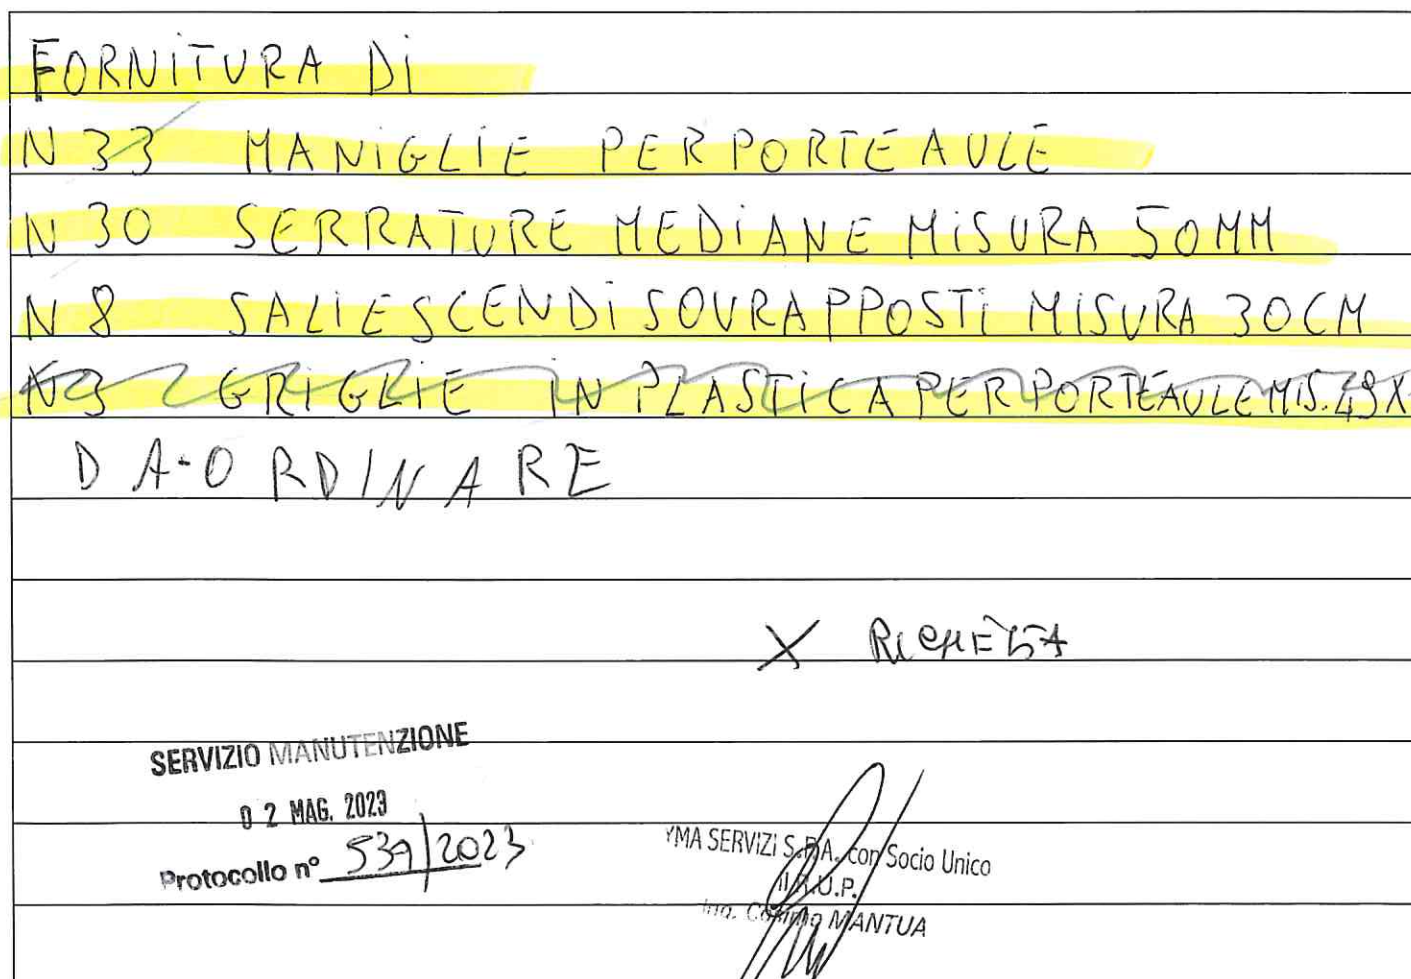 FORNITURA DI
N 33 MANIGLIE PER PORTE AULE
N 30 SERRATURE MEDIANE MISURA 50MM
N 8 SALIESCENDI SOVRAPPOSTI MISURA 30CM
N3 GRIGLIE IN PLASTICA PER PORTE AULE MIS. 49X
DA-ORDINARE
X RICHIESTA
SERVIZIO MANUTENZIONE
02 MAG. 2023
Protocollo n° 539/2023
YMA SERVIZI S.P.A. con Socio Unico
Il R.U.P.
Ing. Cosimo MANTUA